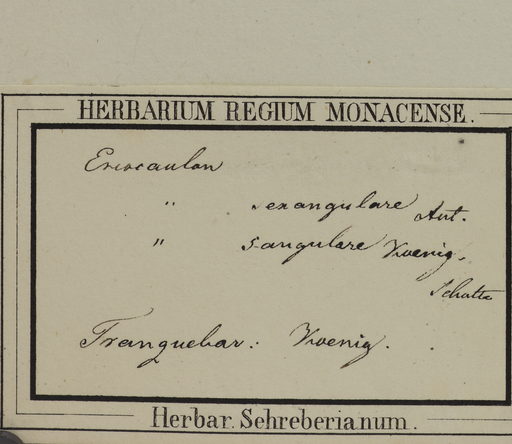 HERBARIUM REGIUM MONACENSE.
Eriocaulon
" sexangulare Aut.
" 5-angulare Koenig.
Tranquebar: Koenig.
Herbar. Schreberianum.